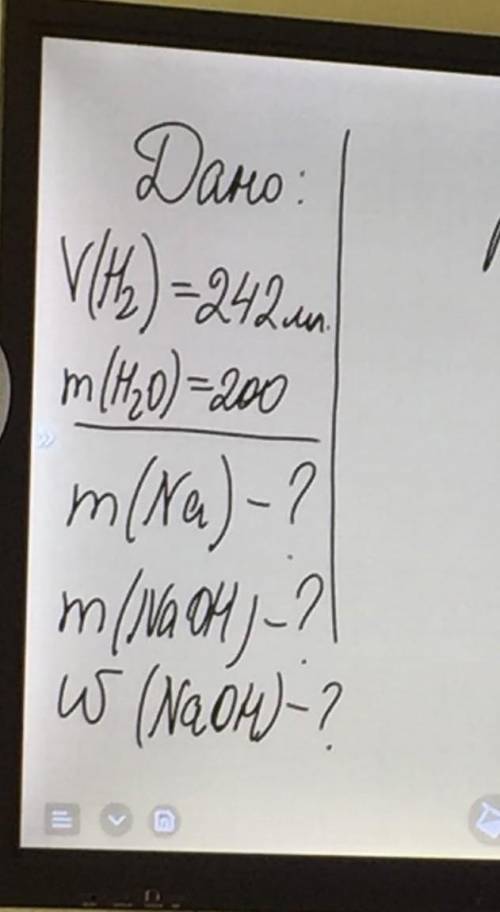 Дано:
V(H₂)=242мл.
m(H₂O)=200
m(Na)-?
m(NaOH)-?
W(NaOH)-?